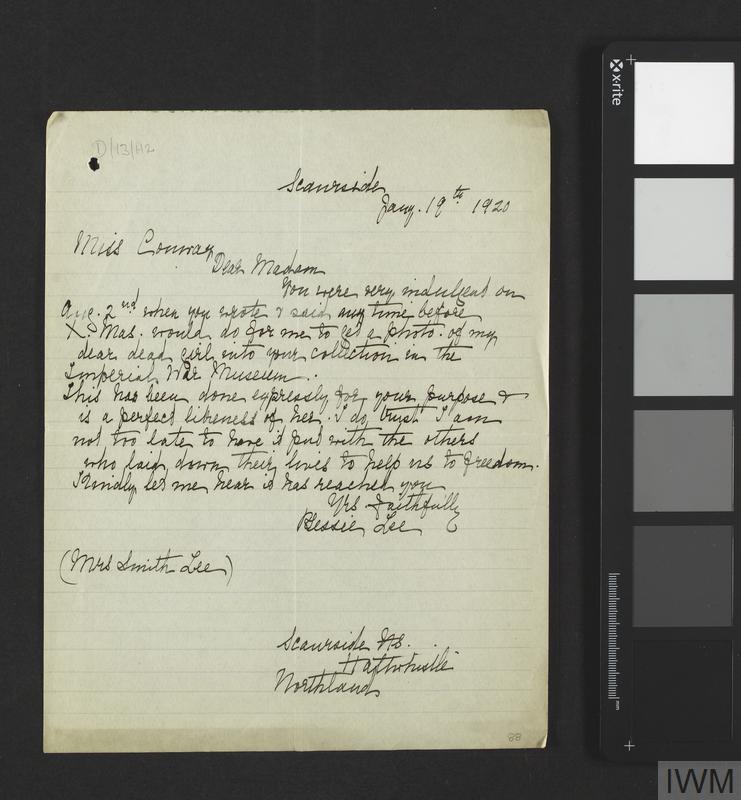 D/13/112
Scaurside
Jany. 19th 1920
Miss Conway
Dear Madam
You were very indulgent on
Aug. 2nd when you wrote & said any time before
X Mas. would do for me to get a photo. of my
dear dead girl into your collection in the
Imperial War Museum.
This has been done expressly for your purpose &
is a perfect likeness of her. I do trust I am
not too late to have it put with the others
who laid down their lives to help us to freedom.
Kindly let me hear it has reached you
Yrs faithfully
Bessie Lee
(Mrs Smith Lee)
Scaurside
Haltwhistle
Northland
88
x-rite
mm
IWM